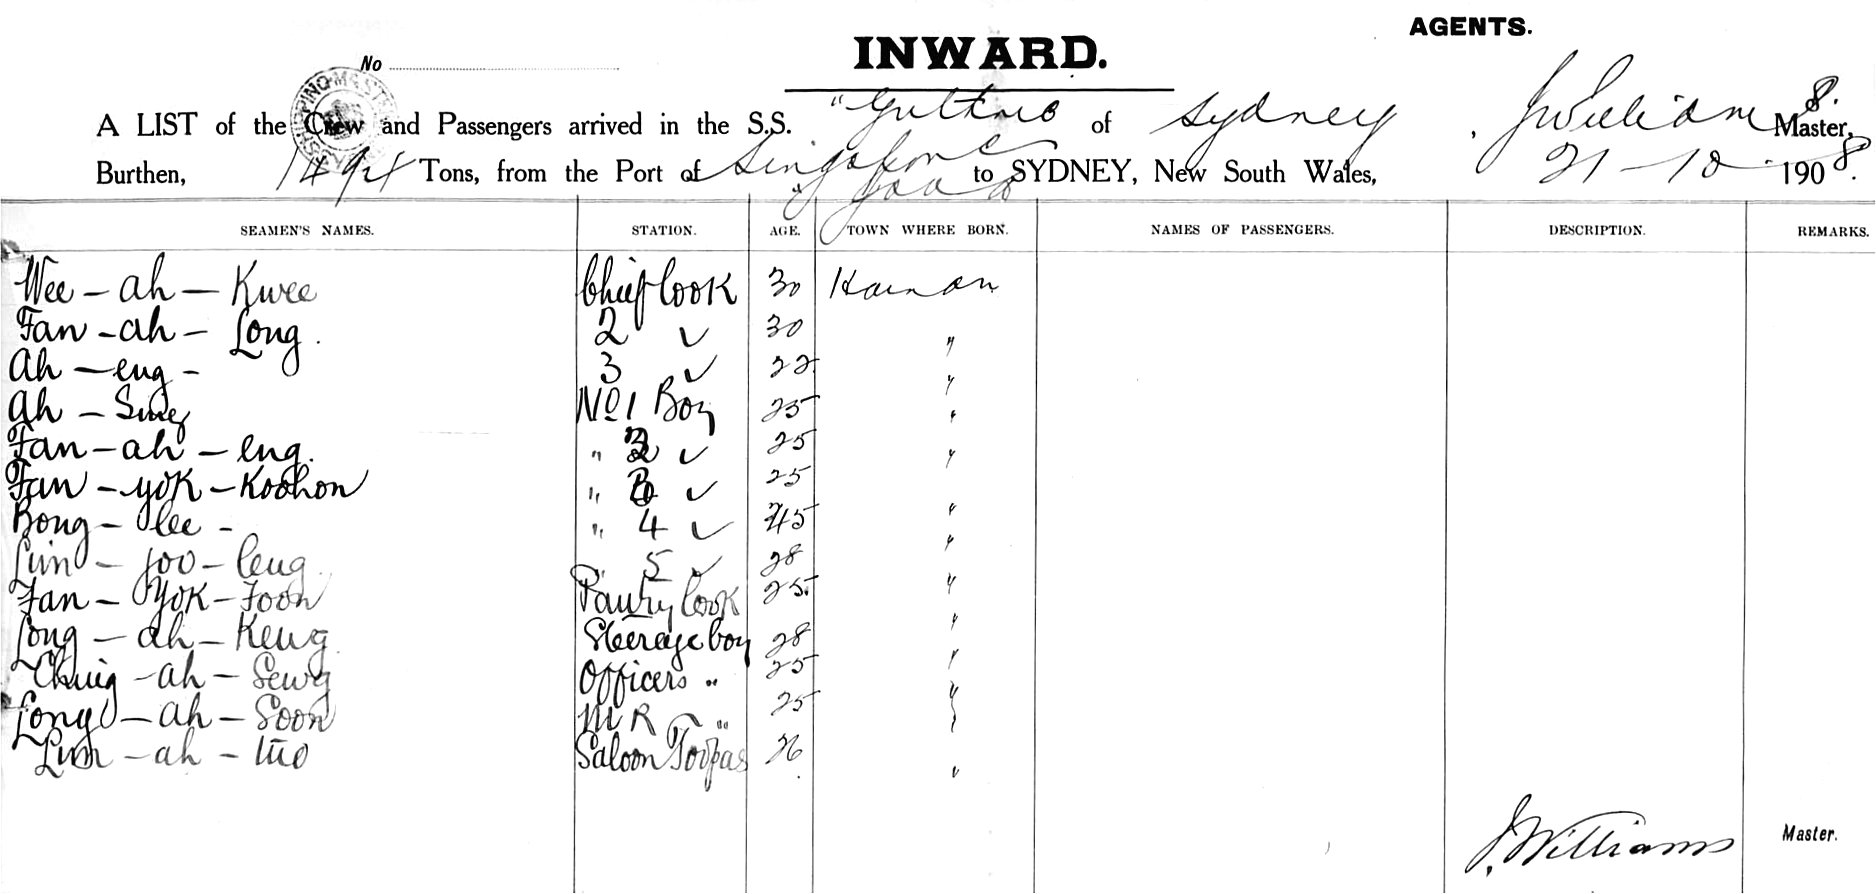 AGENTS.
INWARD.
No
A LIST of the Crew and Passengers arrived in the S.S. "Guthrie of Sydney, J Williams Master,
Burthen, 1494 Tons, from the Port of Singapore to SYDNEY, New South Wales, 21-10-1908.
" Java
SEAMEN'S NAMES. STATION. AGE. TOWN WHERE BORN. NAMES OF PASSENGERS. DESCRIPTION. REMARKS.
Wee - ah - Kwee Chief Cook 30 Hainan
Fan - ah - Long. 2 " 30 "
Ah - eng - 3 " 22 "
Ah - Sing No 1 Boy 25 "
Fan - ah - eng. " 2 " 25 "
Fan - yok - Koohon " 3 " 25 "
Bong - lee - " 4 " 45 "
Lim - joo - leng " 5 " 28 "
Fan - Yok - Foon Pantry Cook 25 "
Long - ah - Keng Steerage boy 28 "
Ching - ah - Seng Officers " 25 "
Long - ah - Soon M R " 25 "
Lim - ah - tuo Saloon Toopas 26 "
J. Williams Master.